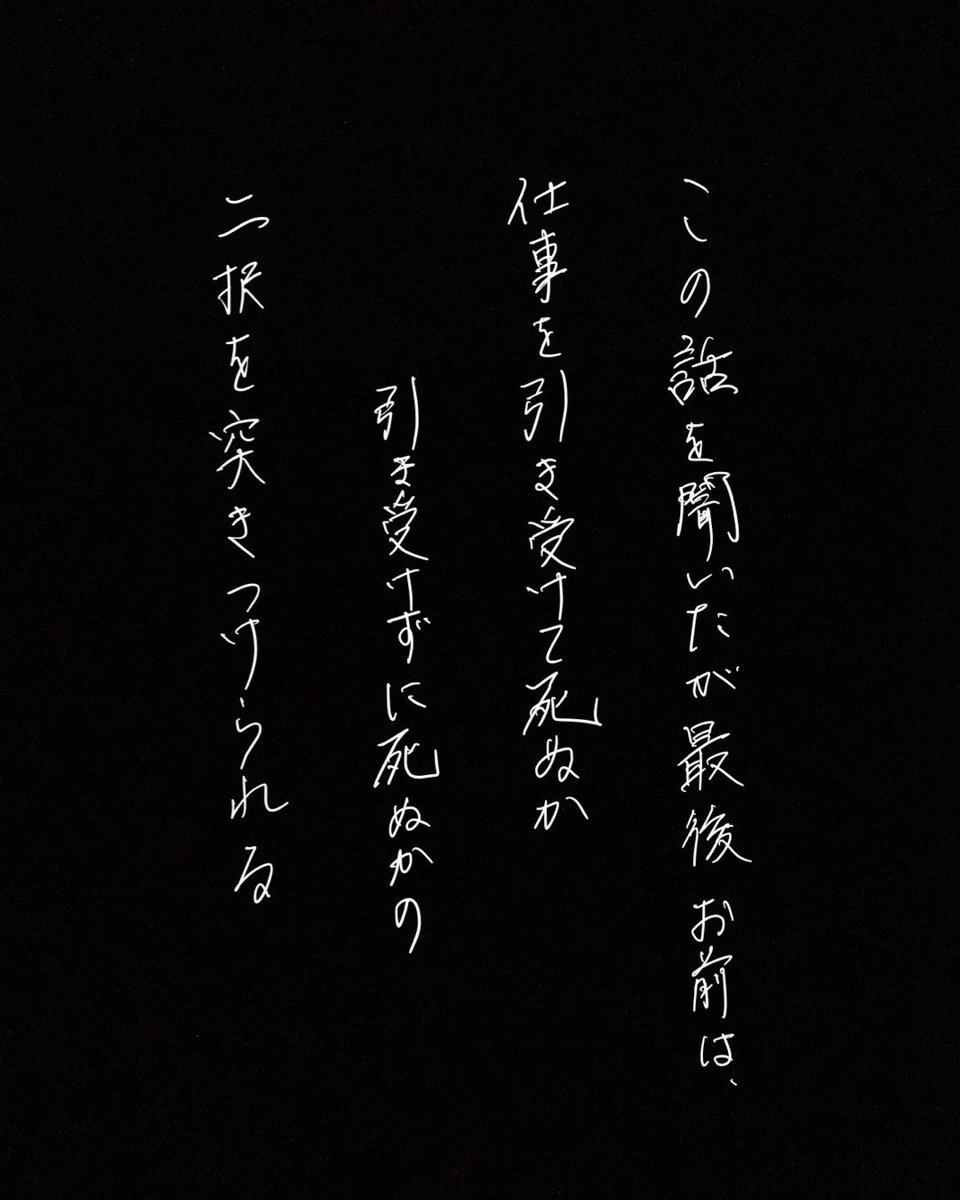 この話を聞いたが最後 お前は、
仕事を引き受けて死ぬか
引き受けずに死ぬかの
二択を突きつけられる